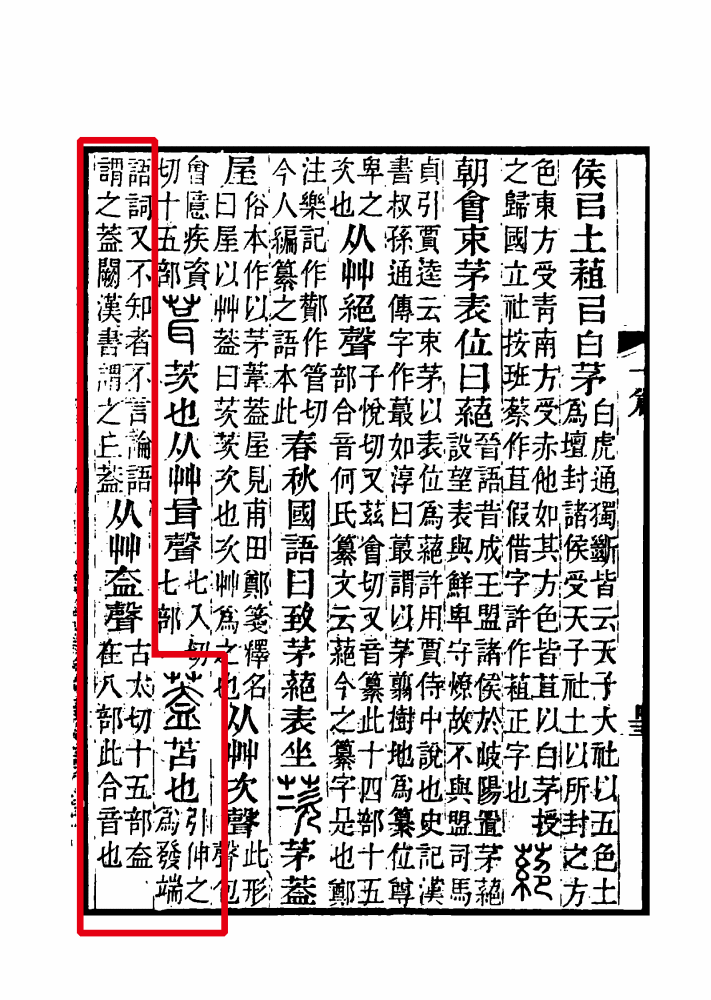 侯㠯土蒩㠯白茅白虎通獨斷皆云天子大社以五色土爲壇封諸侯受天子社土以所封之方
色東方受青南方受赤他如其方色皆苴以白茅授之歸國立社按班蔡作苴假借字許作蒩正字也蕝
朝會束茅表位曰蕝晉語昔成王盟諸侯於岐陽置茅蕝設望表與鮮卑守燎故不與盟司馬
貞引賈逵云束茅以表位爲蕝許用賈侍中說也史記漢書叔孫通傳字作蕞如淳曰蕞謂以茅翦樹地爲纂位尊
卑之次也从艸絕聲子悅切又茲會切又音纂此十四部十五部合音何氏纂文云蕝今之纂字是也鄭
注樂記作酇作管切今人編纂之語本此春秋國語曰致茅蕝表坐茨茅蓋
屋俗本作以茅葦蓋屋見甫田鄭箋釋名曰屋以艸蓋曰茨茨次也次艸爲之也从艸次聲此形聲包
會意疾資切十五部葺茨也从艸咠聲七入切七部蓋苫也引伸之爲發端
語詞又不知者不言論語謂之蓋闕漢書謂之丘蓋从艸盇聲古太切十五部盇在八部此合音也